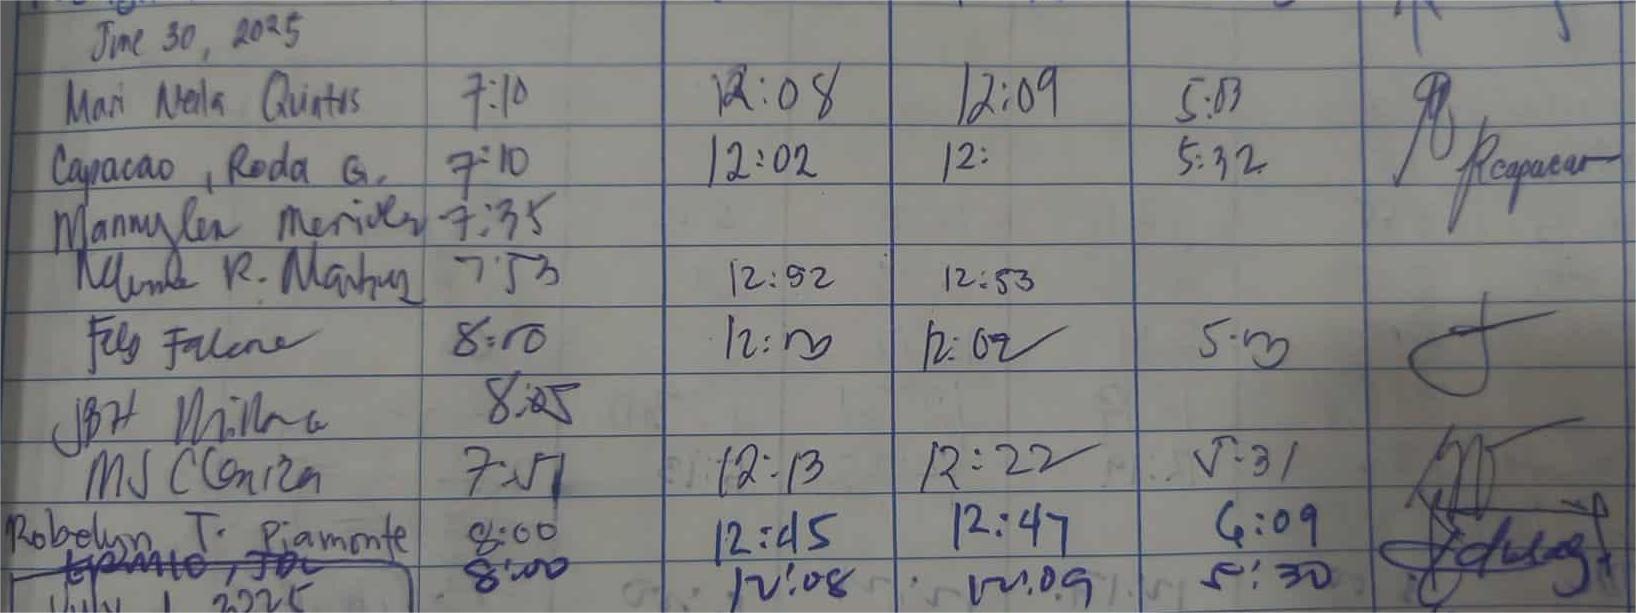 June 30, 2025
Mari Neila Quintos 7:10 12:08 12:09 5:03
Capacao, Roda G. 7:10 12:02 12: 5:32 Rcapacao
Mannylen Merioles 7:35
R. 7:53 12:52 12:53
Falcone 8:00 12:00 12:02 5:00
JBH 8:25
MS CConiza 7:51 12:13 12:22 5:31
Robelyn T. Piamonte 8:00 12:45 12:47 6:09
8:00 12:08 12:09 5:30
July 1, 2025